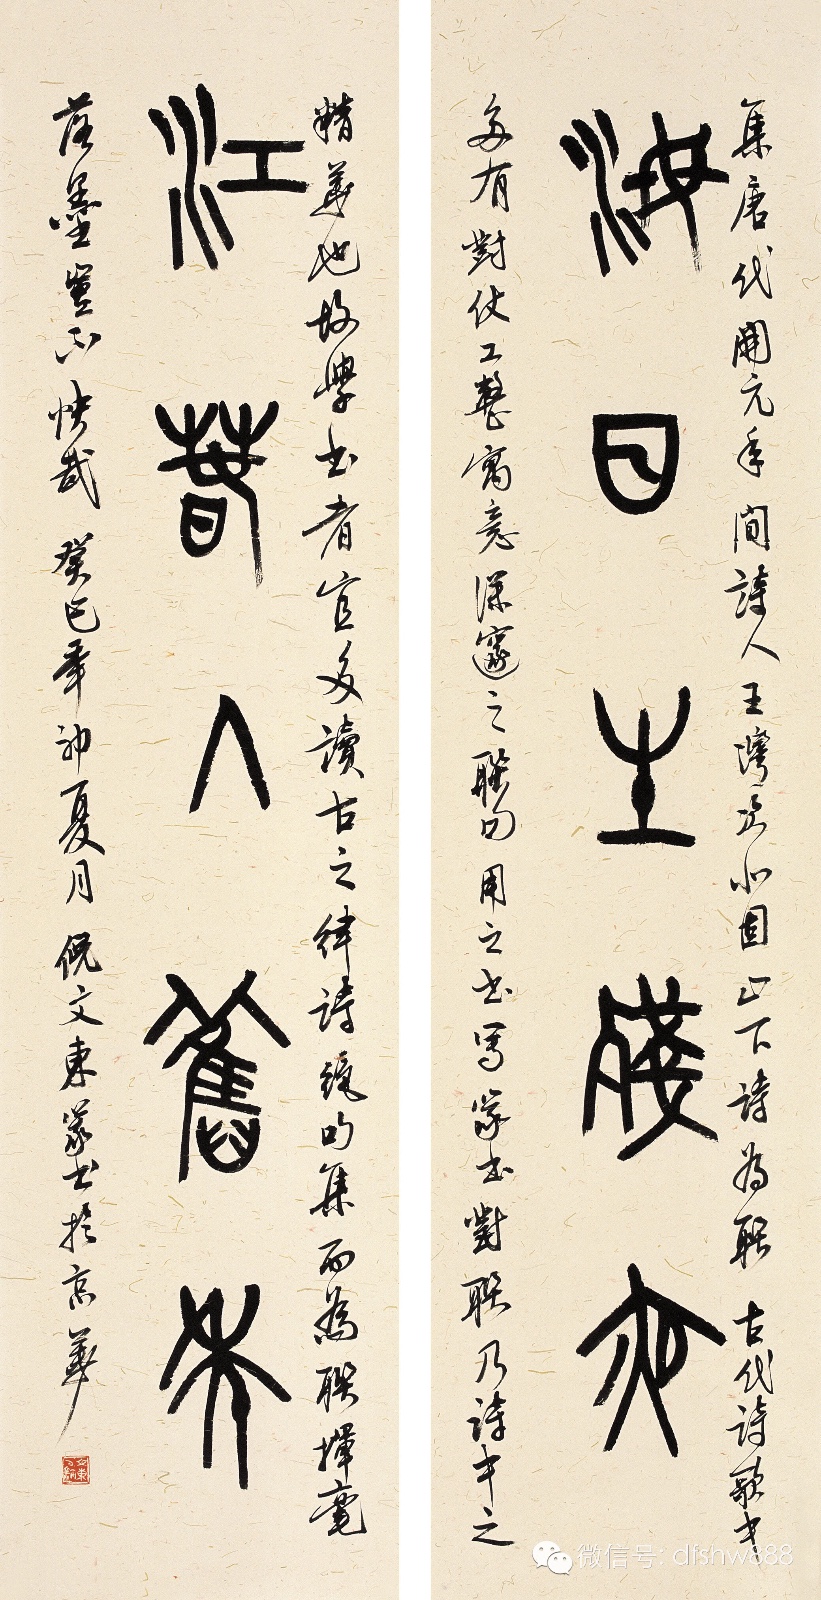 集唐代開元年間詩人王灣次北固山下詩為聯古代詩歌中
海日生殘夜
多有對仗工整寓意深邃之聯句用之書寫篆書對聯乃詩中之
精華也故學書者宜多讀古之律詩絕句集而為聯揮毫
江春入舊年
落墨豈不快哉 癸巳年初夏月倪文東篆書於京華
微信号: dfshw888